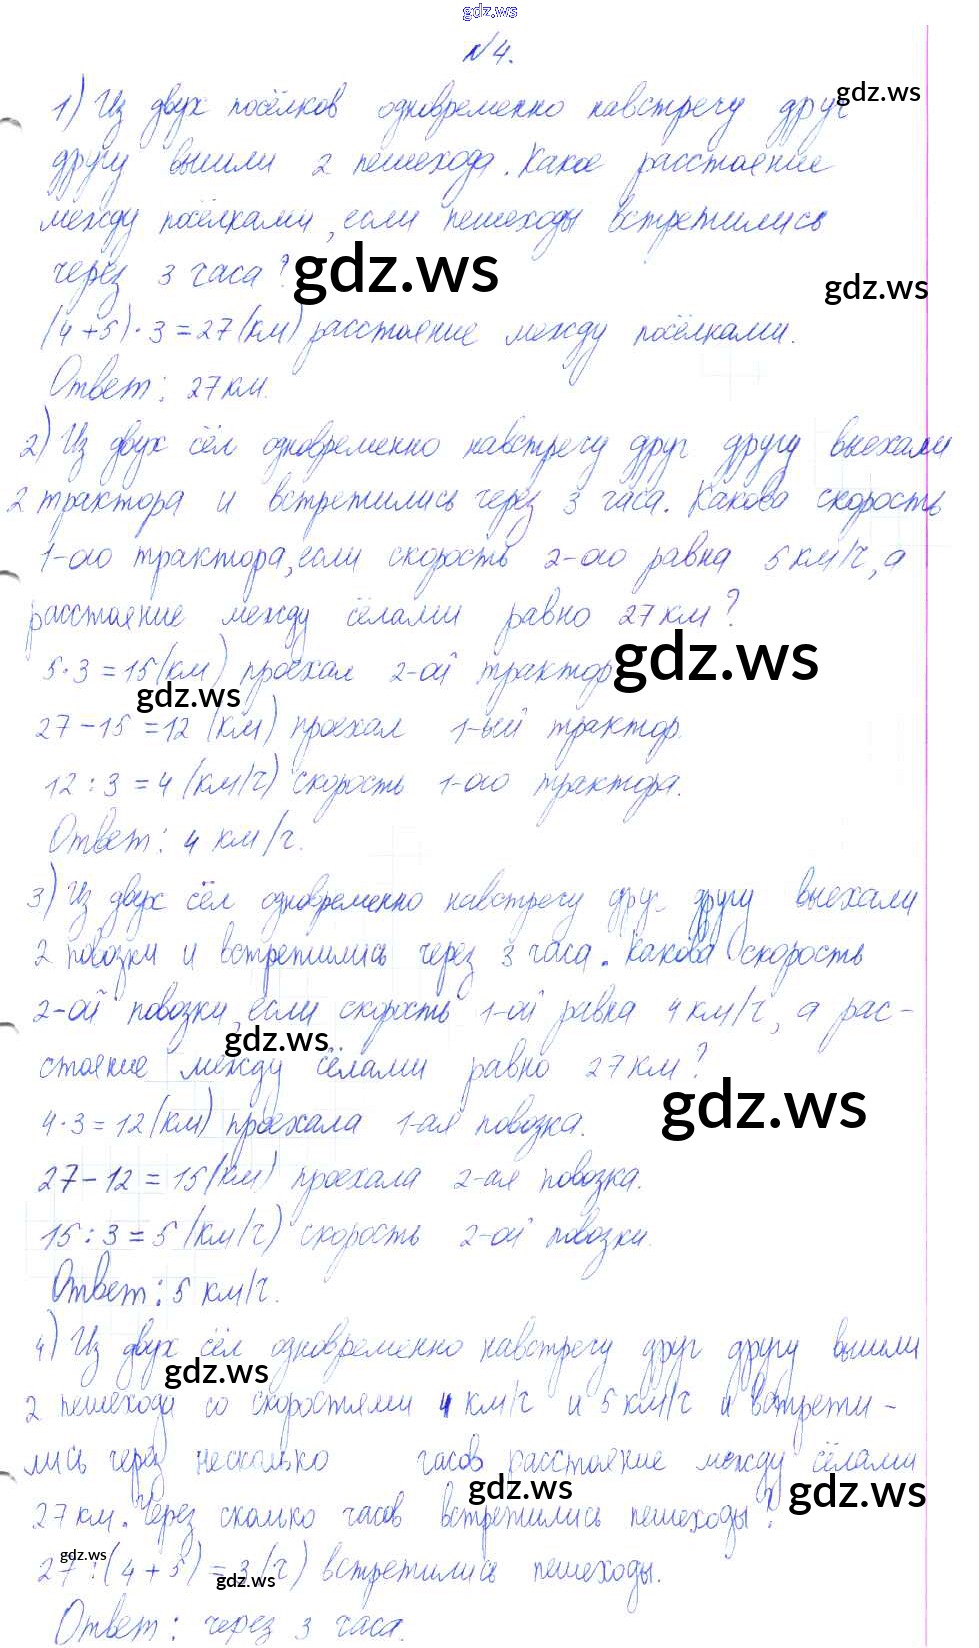 gdz.ws
№4.
1) Из двух посёлков одновременно навстречу друг
gdz.ws
другу вышли 2 пешехода. Какое расстояние
между посёлками, если пешеходы встретились
через 3 часа?
gdz.ws
gdz.ws
(4+5)·3=27(км) расстояние между посёлками.
Ответ: 27км.
2) Из двух сёл одновременно навстречу друг другу выехали
2 трактора и встретились через 3 часа. Какова скорость
1-ого трактора, если скорость 2-ого равна 5км/ч, а
расстояние между сёлами равно 27км?
5·3=15(км) проехал 2-ой трактор
gdz.ws
gdz.ws
27-15=12 (км) проехал 1-ый трактор.
12:3=4 (км/ч) скорость 1-ого трактора.
Ответ: 4 км/ч.
3) Из двух сёл одновременно навстречу друг другу выехали
2 повозки и встретились через 3 часа. Какова скорость
2-ой повозки, если скорость 1-ой равна 4км/ч, а рас-
gdz.ws
стояние между сёлами равно 27км?
4·3=12(км) проехала 1-ая повозка.
gdz.ws
27-12=15(км) проехала 2-ая повозка.
15:3=5 (км/ч) скорость 2-ой повозки.
Ответ: 5 км/ч.
4) Из двух сёл одновременно навстречу друг другу вышли
gdz.ws
2 пешехода со скоростями 4 км/ч и 5км/ч и встрети-
лись через несколько часов расстояние между сёлами
gdz.ws
gdz.ws
27км. Через сколько часов встретились пешеходы?
gdz.ws
27:(4+5)=3(ч) встретились пешеходы.
gdz.ws
Ответ: через 3 часа.